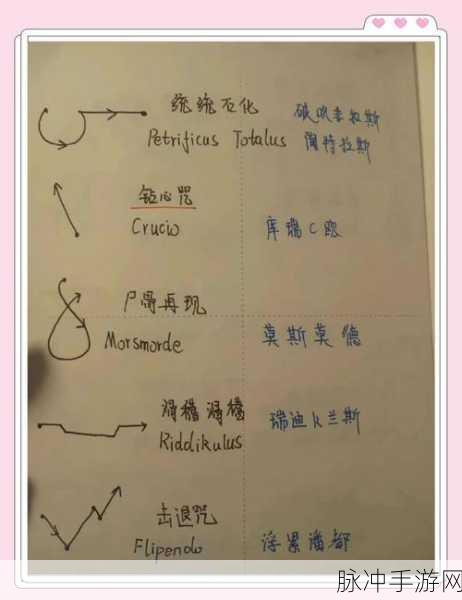 统统石化
Petrificus Totalus
钻心咒
Crucio
库瑞C欧
尸骨再现
Morsmorde
莫斯莫德
滑稽滑稽
Riddikulus
瑞迪k兰斯
击退咒
Flipendo
浮累潘都
脉冲手游网